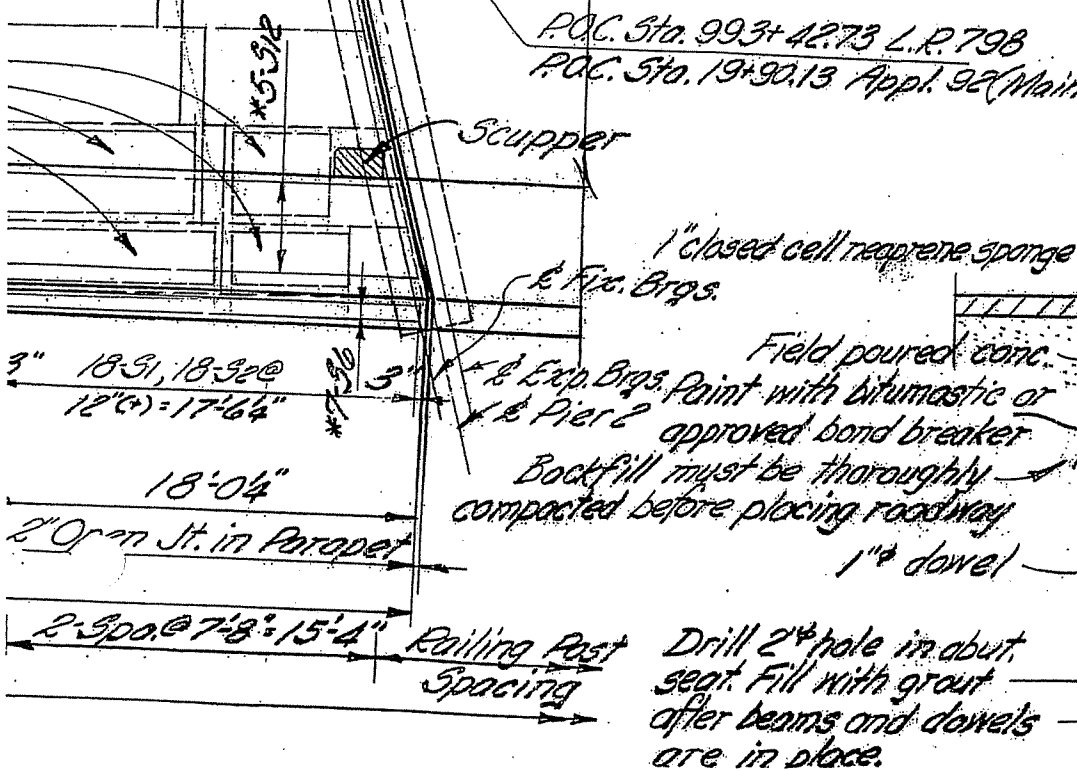 P.O.C. Sta. 993+42.73 L.R. 798
P.O.C. Sta. 19+90.13 Appl. 92 (Main
*5-S12
Scupper
1" closed cell neoprene sponge
℄ Fix. Brgs.
Field poured conc.
3"
18-S1, 18-S2 @
12"(+) = 17'-6¼"
*7-S6
3"
℄ Exp. Brgs.
℄ Pier 2
Paint with bitumastic or
approved bond breaker
Backfill must be thoroughly
compacted before placing roadway
18'-0¼"
2" Open Jt. in Parapet
1"ϕ dowel
2-Spa. @ 7'-8" = 15'-4"
Railing Post
Spacing
Drill 2"ϕ hole in abut.
seat. Fill with grout
after beams and dowels
are in place.